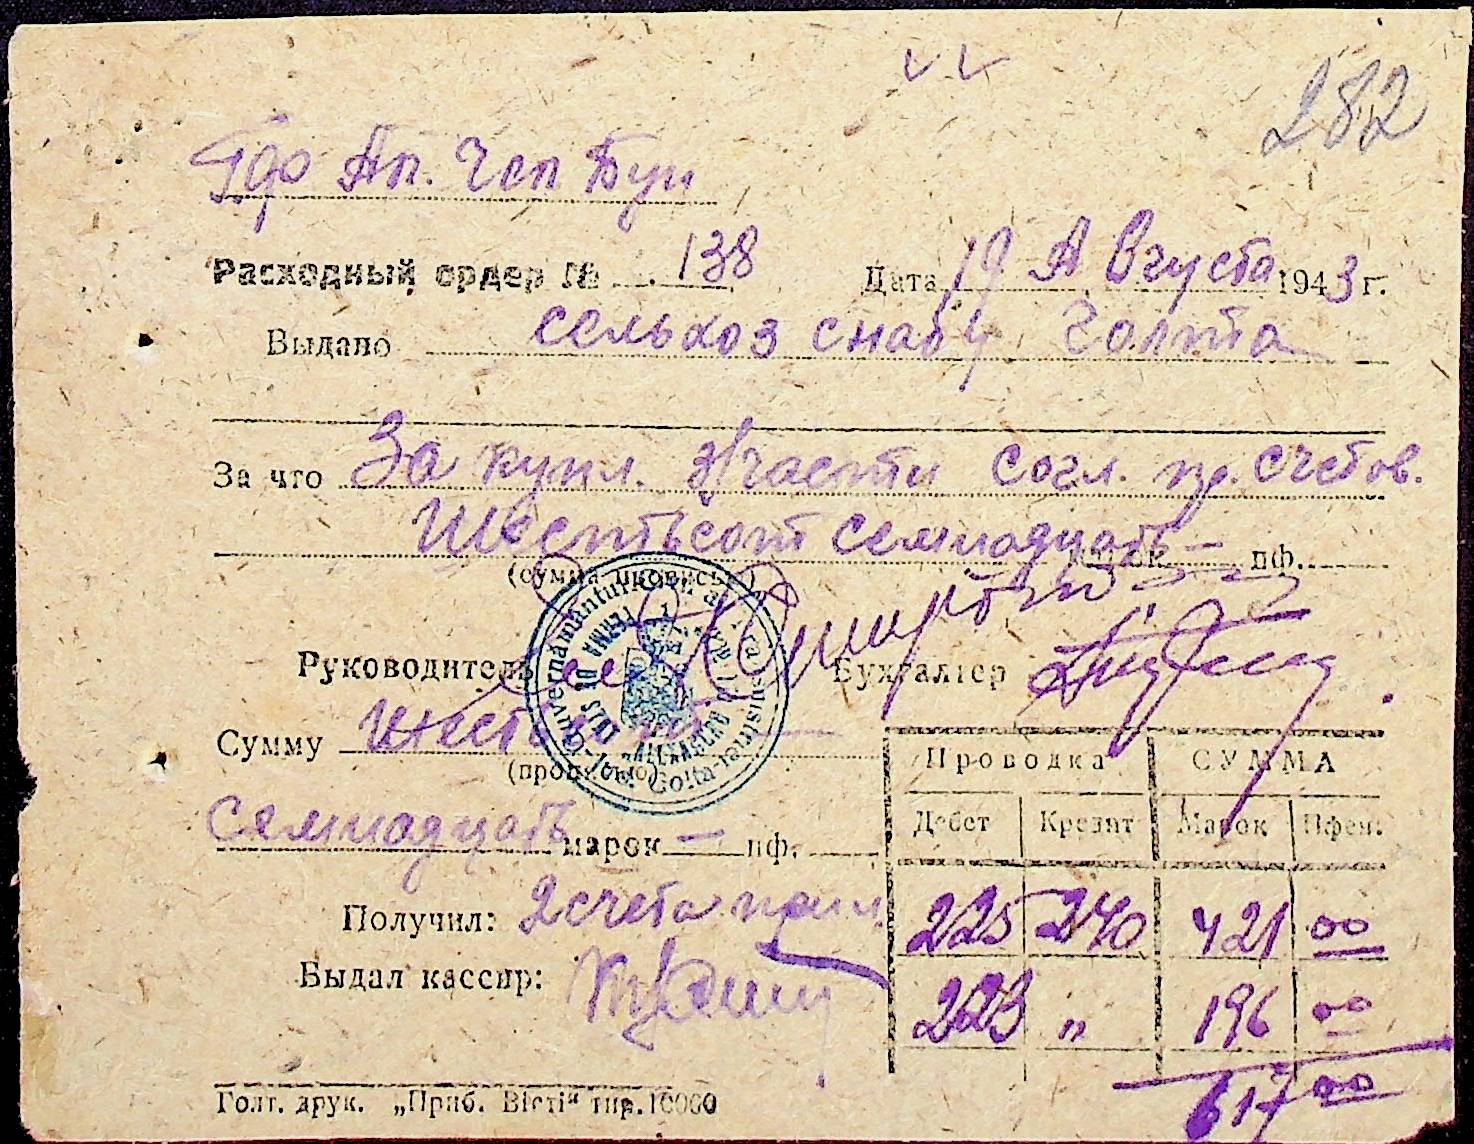 282
Расходный ордер № 138 Дата 19 Августа 1943 г.
Выдано сельхоз снабу Голта
За что За купл. з/части согл. пр. счетов.
Шестьсот семнадцать марок — пф.
(сумма прописью)
Руководитель Бухгалтер
Сумму Шестьсот
(прописью)
семнадцать марок — пф.
Проводка СУММА
Дебет Кредит Марок Пфен.
Получил: 2 счета
225 240 421 00
Выдал кассир:
223 " 196 00
617 00
Голт. друк. „Приб. Вісті“ тир. 10000